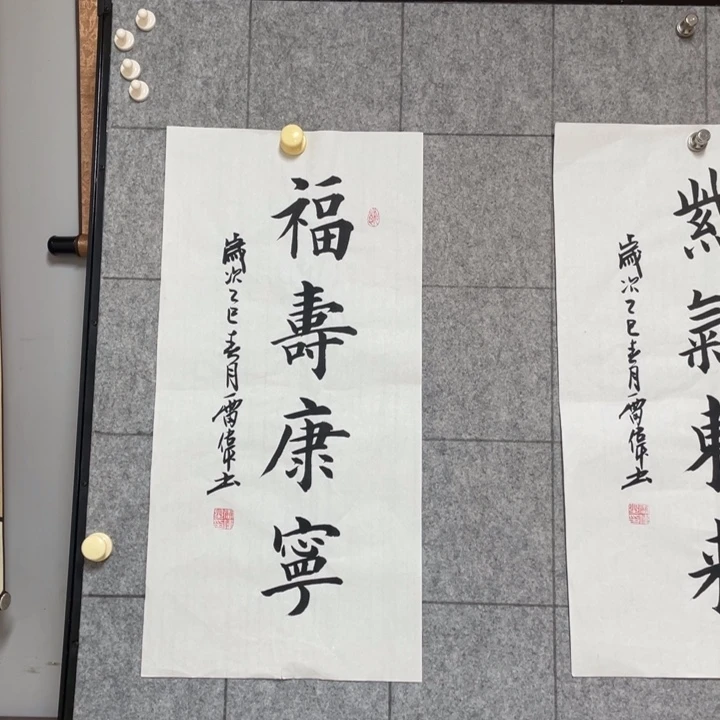 福壽康寧
歲次乙巳春月雷偉書
紫氣東来
歲次乙巳春月雷偉書